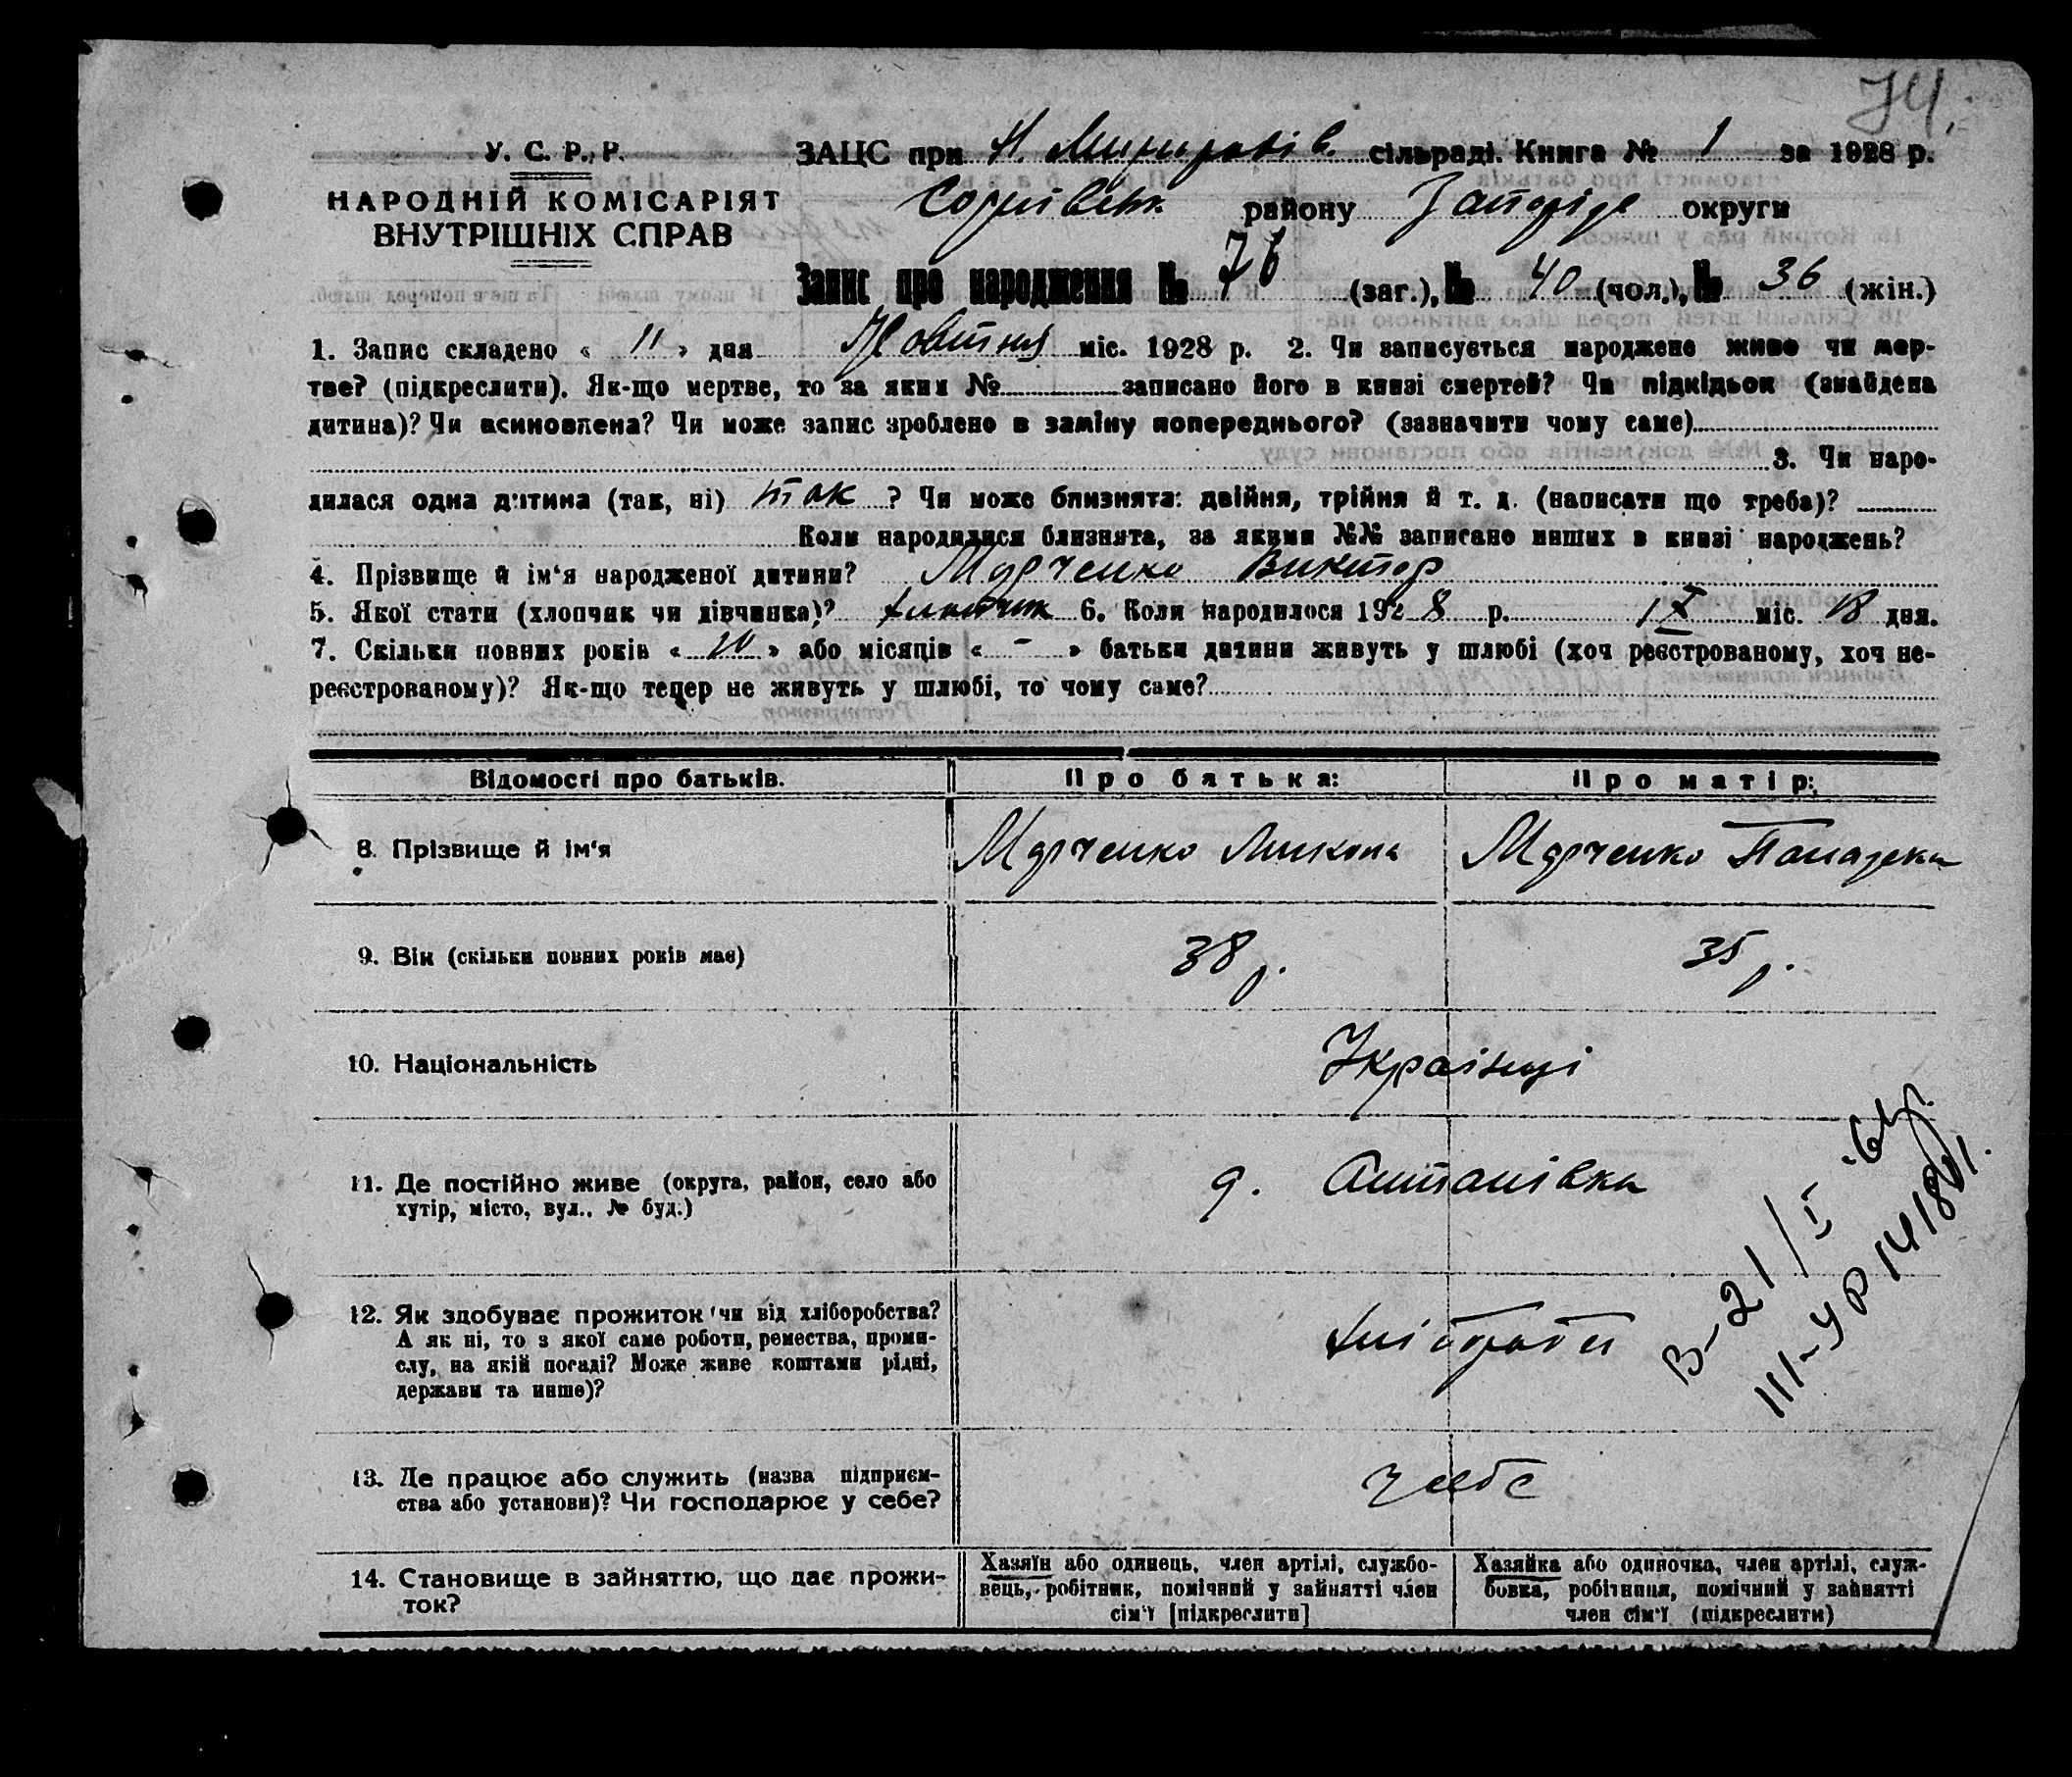 74.
У. С. Р. Р.
НАРОДНІЙ КОМІСАРІЯТ
ВНУТРІШНІХ СПРАВ
ЗАЦС при Н. сільраді. Книга № 1 за 1928 р.
району округи
Запис про народження № 76 (заг.), № 40 (чол.), № 36 (жін.)
1. Запис складено « 11 » дня Жовтня міс. 1928 р. 2. Чи записується народжене живе чи мер-
тве? (підкреслити). Як-що мертве, то за яким № записано його в книзі смертей? Чи підкідьок (знайдена
дитина)? Чи всиновлена? Чи може запис зроблено в заміну попереднього? (зазначити чому саме)
3. Чи наро-
дилася одна дитина (так, ні) так ? Чи може близнята: двійня, трійня й т. д. (написати що треба)?
Коли народилися близнята, за якими №№ записано инших в книзі народжень?
4. Прізвище й ім‘я народженої дитини? Марченко Виктор
5. Якої стати (хлопчик чи дівчинка)? хлопчик 6. Коли народилося 1928 р. IX міс. 18 дня.
7. Скільки повних років « » або місяців « - » батьки дитини живуть у шлюбі (хоч реєстрованому, хоч не-
реєстрованому)? Як-що тепер не живуть у шлюбі, то чому саме?
Відомості про батьків.
Про батька:
Про матір:
8. Прізвище й ім‘я
Марченко Микола
Марченко
9. Вік (скільки повних років має)
38 р.
35 р.
10. Національність
Українці
11. Де постійно живе (округа, район, село або
хутір, місто, вул., № буд.)
д. Антонівка
12. Як здобуває прожиток чи від хліборобства?
А як ні, то з якої саме роботи, ремества, проми-
слу, на якій посаді? Може живе коштами рідні,
держави та инше)?
хлібороби
В-21/I-64р.
III-УР
13. Де працює або служить (назва підприєм-
ства або установи)? Чи господарює у себе?
у себе
14. Становище в зайняттю, що дає прожи-
ток?
Хазяїн або одинець, член артілі, службо-
вець, робітник, помічний у зайнятті член
сім‘ї [підкреслити]
Хазяйка або одиночка, член артілі, служ-
бовка, робітниця, помічний у зайнятті
член сім‘ї (підкреслити)